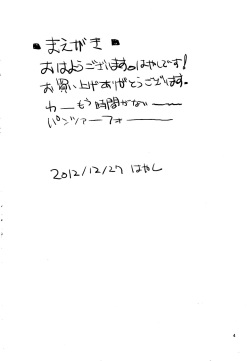 ▪まえがき▪
おはようございます。はやしです!
お買い上げありがとうございます。
わーもう時間がないーー
パンツァーフォーーー
2012/12/27 はやし